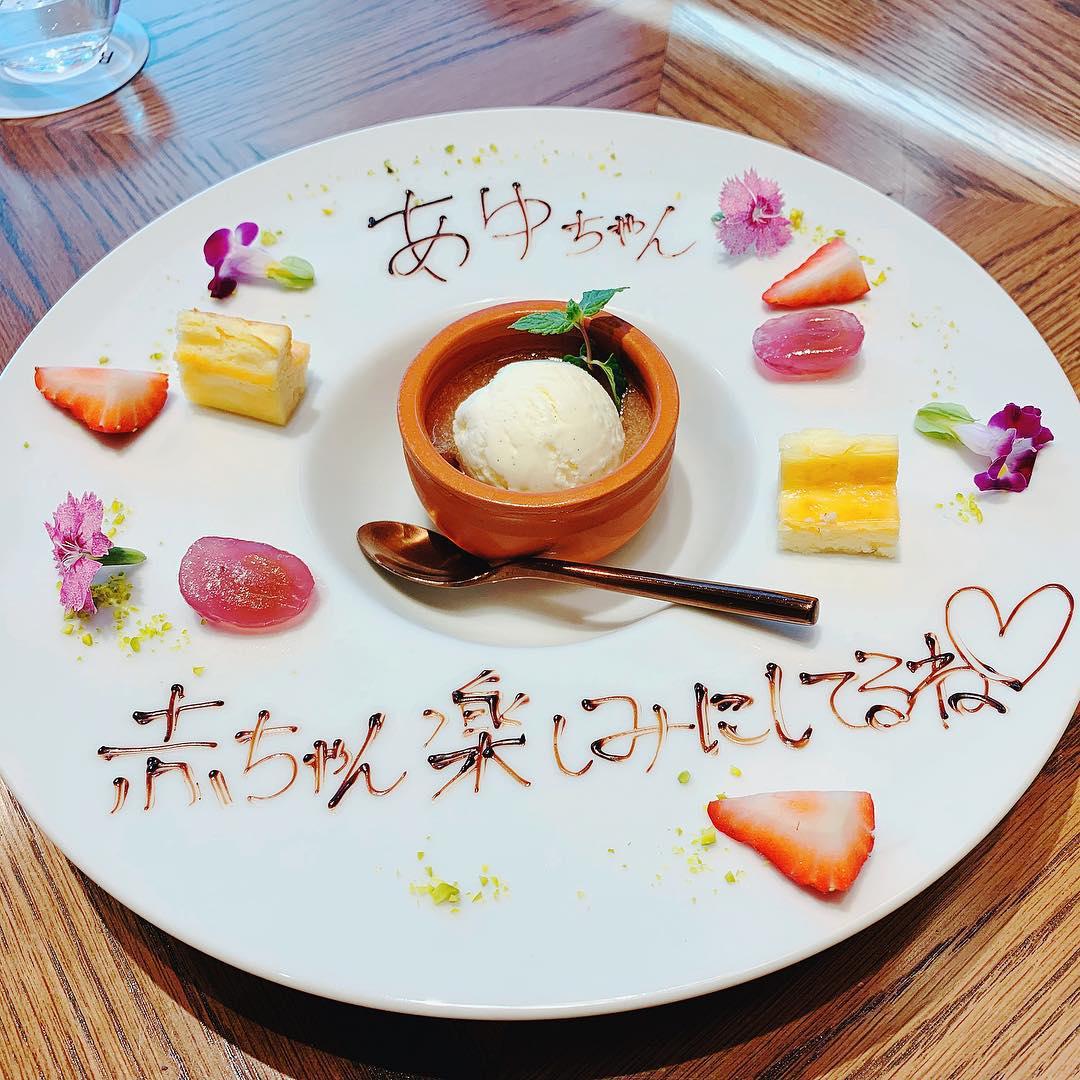 あゆちゃん
赤ちゃん楽しみにしてるね♡